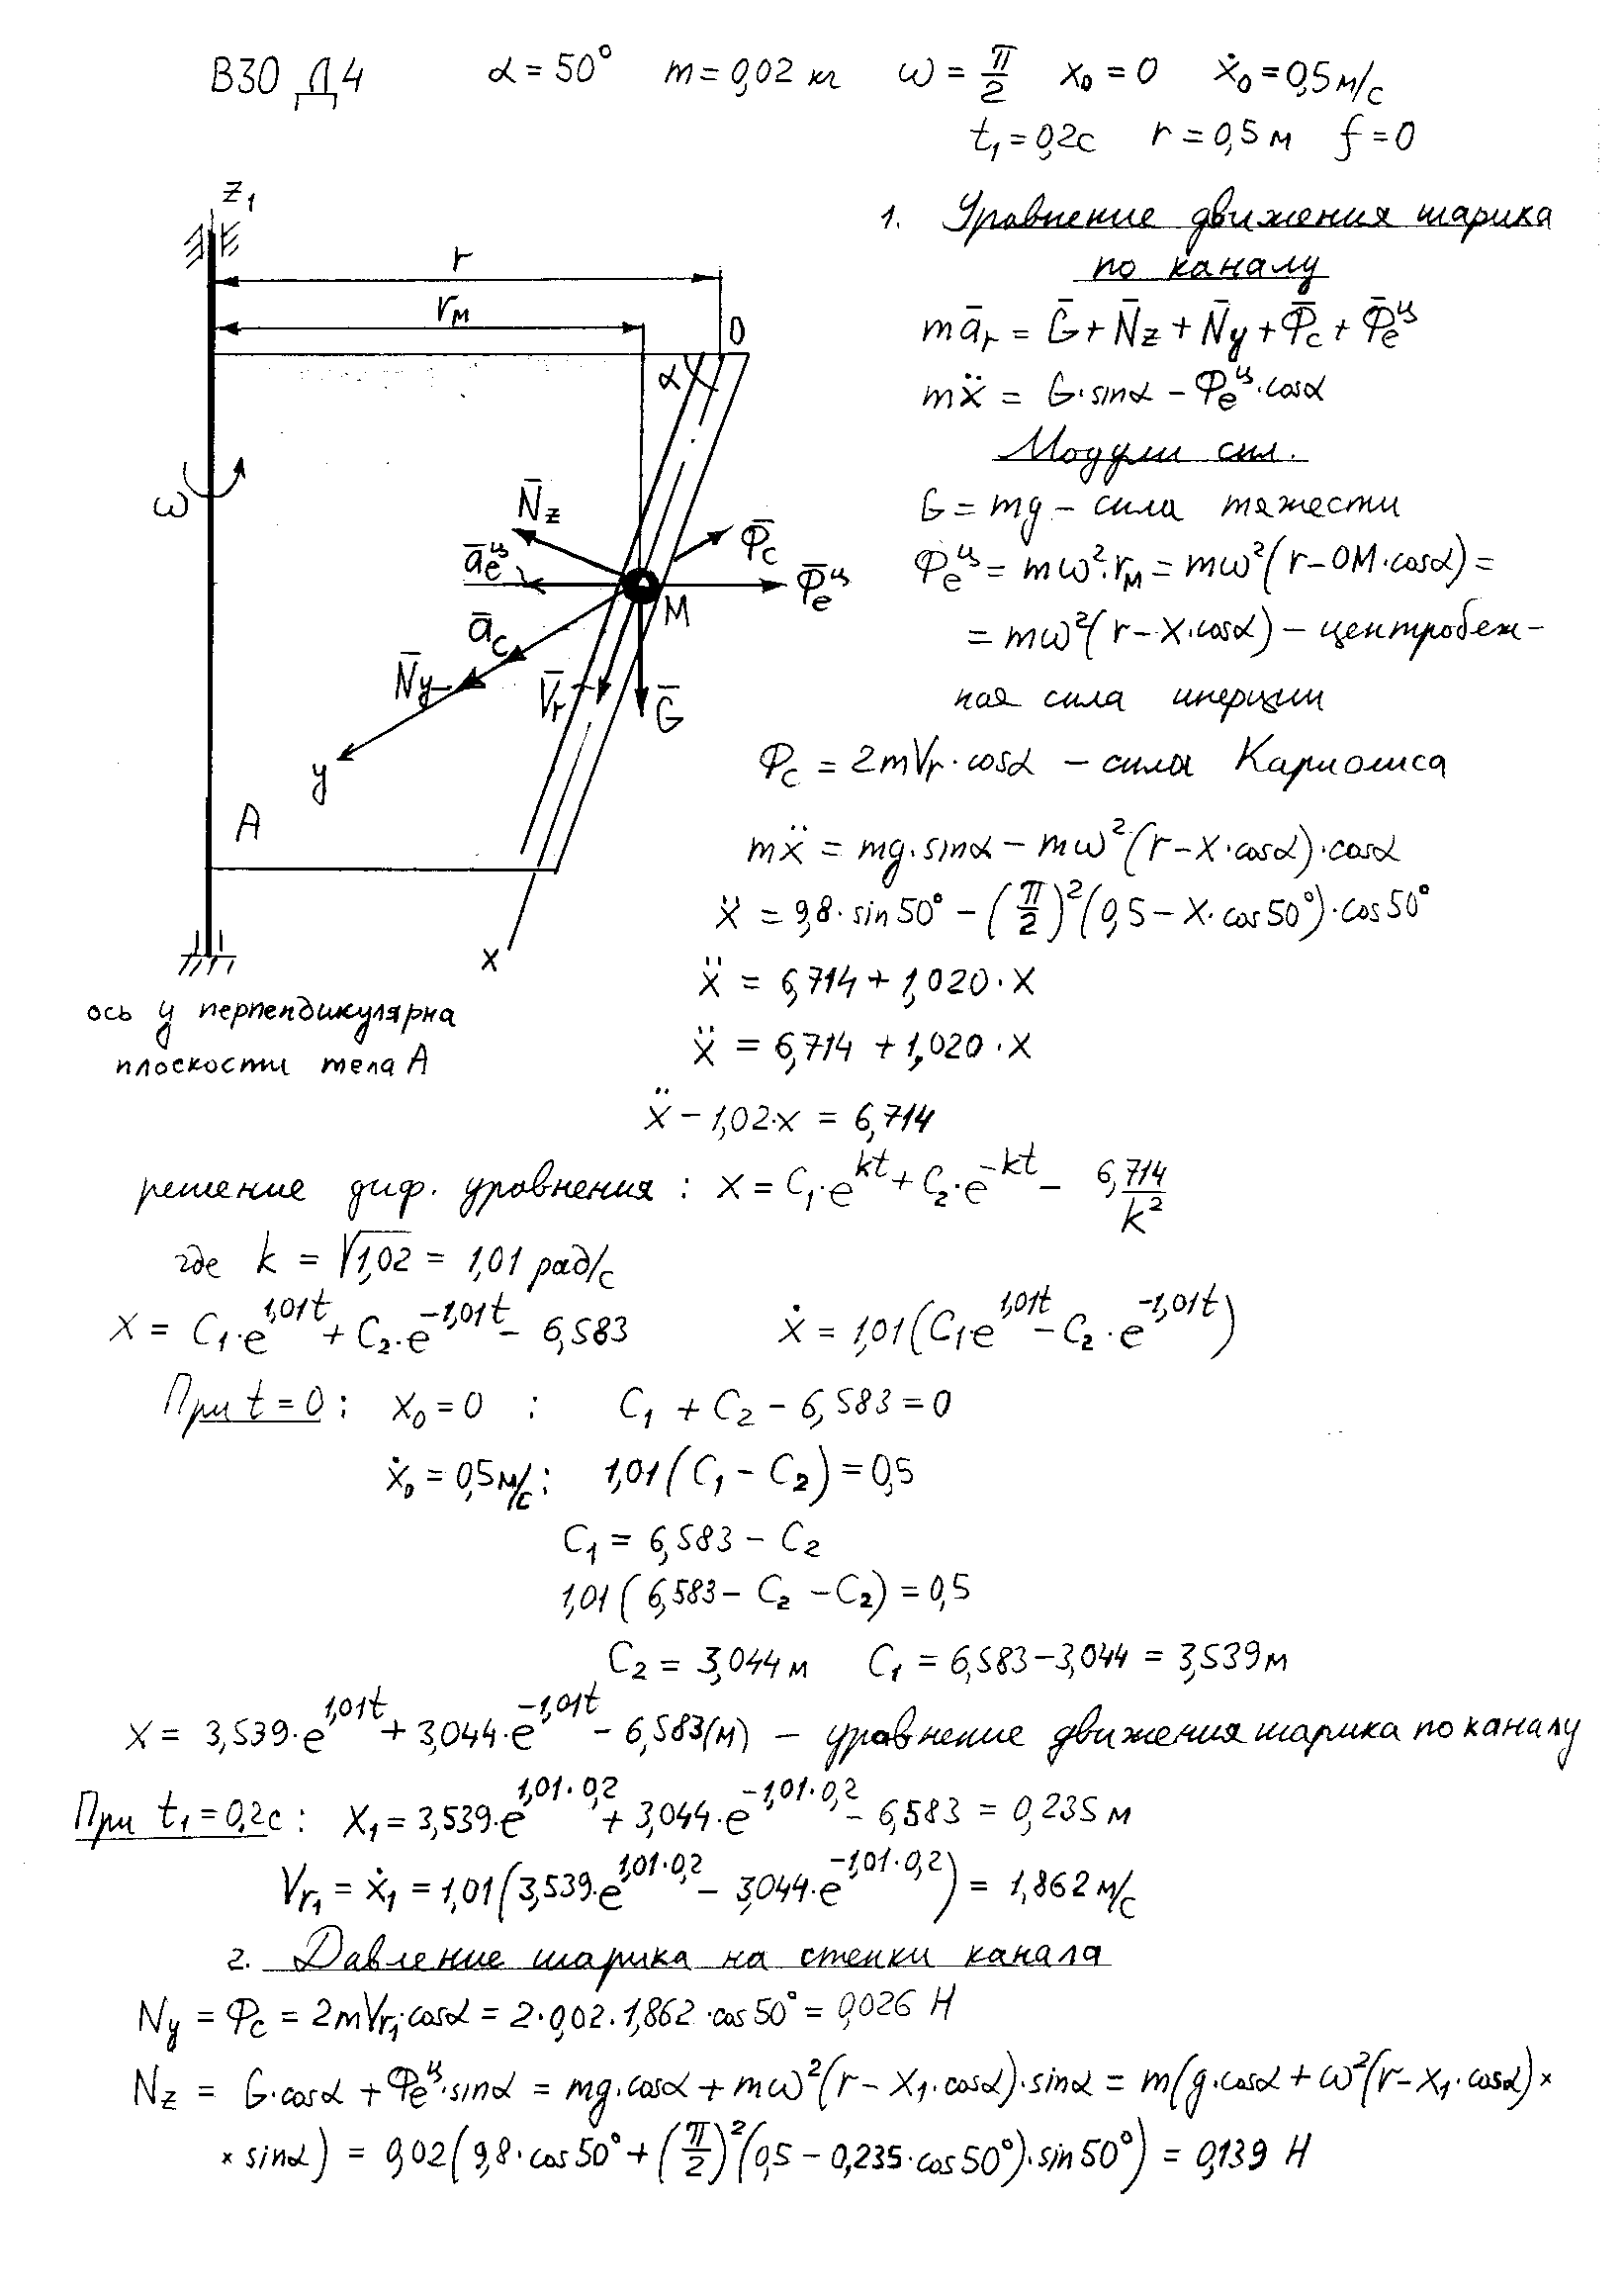 В30 Д4   α = 50°   m = 0,02 кг   ω = π/2   x₀ = 0   ẋ₀ = 0,5 м/с
t₁ = 0,2с   r = 0,5 м   f = 0
z₁
1. Уравнение движения шарика
по каналу
r
r_M
O
α
mā_r = Ḡ + N̄_z + N̄_y + Φ̄_c + Φ̄_e^ц
mẍ = G·sinα − Φ_e^ц·cosα
Модули сил.
ω
N̄_z
Φ̄_c
ā_e^ц
Φ̄_e^ц
M
ā_c
N̄_y
V̄_r
Ḡ
y
A
x
G = mg – сила тяжести
Φ_e^ц = mω²·r_M = mω²(r − OM·cosα) =
= mω²(r − x·cosα) – центробеж-
ная сила инерции
Φ_c = 2mV_r·cosα – сила Кариолиса
mẍ = mg·sinα − mω²(r − x·cosα)·cosα
ẍ = 9,8·sin50° − (π/2)²(0,5 − x·cos50°)·cos50°
ẍ = 6,714 + 1,020·x
ось y перпендикулярна
плоскости тела A
ẍ = 6,714 + 1,020·x
ẍ − 1,02·x = 6,714
решение диф. уровнения : x = C₁·e^kt + C₂·e^−kt − 6,714/k²
где k = √1,02 = 1,01 рад/с
x = C₁·e^1,01t + C₂·e^−1,01t − 6,583   ẋ = 1,01(C₁e^1,01t − C₂·e^−1,01t)
При t = 0 :   x₀ = 0 :   C₁ + C₂ − 6,583 = 0
ẋ₀ = 0,5м/с :   1,01(C₁ − C₂) = 0,5
C₁ = 6,583 − C₂
1,01(6,583 − C₂ − C₂) = 0,5
C₂ = 3,044 м   C₁ = 6,583−3,044 = 3,539м
x = 3,539·e^1,01t + 3,044·e^−1,01t − 6,583(м) – уровнение движения шарика по каналу
При t₁=0,2с :   x₁ = 3,539·e^1,01·0,2 + 3,044·e^−1,01·0,2 − 6,583 = 0,235 м
V_r₁ = ẋ₁ = 1,01(3,539·e^1,01·0,2 − 3,044·e^−1,01·0,2) = 1,862 м/с
2. Давление шарика на стенки канала
N_y = Φ_c = 2mV_r₁·cosα = 2·0,02·1,862·cos50° = 0,026 Н
N_z = G·cosα + Φ_e^ц·sinα = mg·cosα + mω²(r − x₁·cosα)·sinα = m(g·cosα + ω²(r − x₁·cosα)×
× sinα) = 0,02(9,8·cos50° + (π/2)²(0,5 − 0,235·cos50°)·sin50°) = 0,139 Н